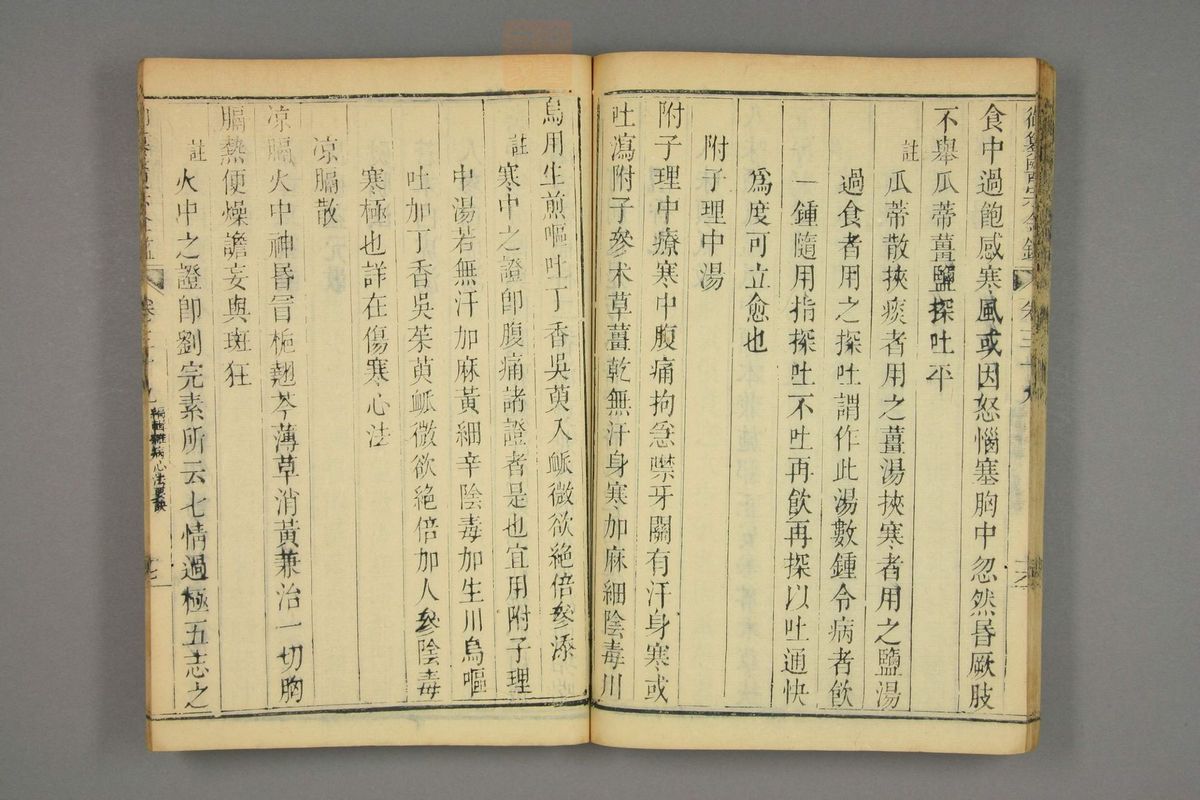 御纂醫宗金鑑 卷三十九
食中過飽感寒風或因怒惱塞胸中忽然昏厥肢
不舉瓜蒂薑鹽探吐平
註 瓜蒂散挾痰者用之薑湯挾寒者用之鹽湯
過食者用之探吐謂作此湯數鍾令病者飲
一鍾隨用指探吐不吐再飲再探以吐通快
爲度可立愈也
附子理中湯
附子理中療寒中腹痛拘急噤牙關有汗身寒或
吐瀉附子參朮草薑乾無汗身寒加麻細陰毒川
烏用生煎嘔吐丁香吳萸入脈微欲絶倍參添
註 寒中之證卽腹痛諸證者是也宜用附子理
中湯若無汗加麻黃細辛陰毒加生川烏嘔
吐加丁香吳茱萸脈微欲絶倍加人參陰毒
寒極也詳在傷寒心法
凉膈散
凉膈火中神昏冒梔翹芩薄草消黃兼治一切胸
膈熱便燥譫妄與斑狂
註 火中之證卽劉完素所云七情過極五志之
編輯雜病心法要訣